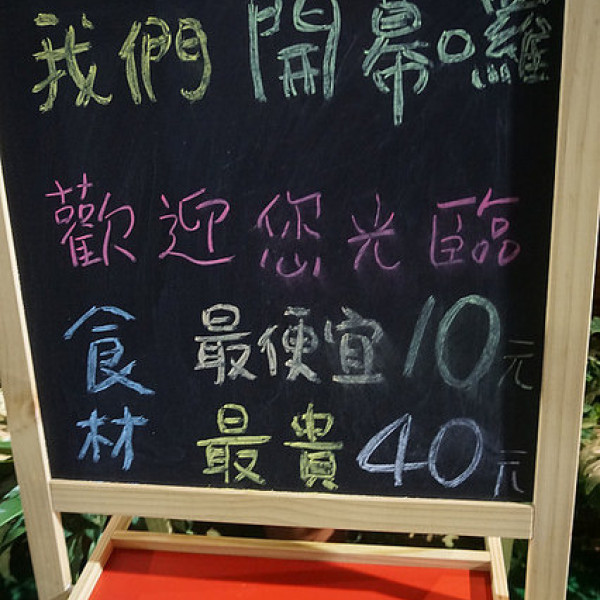 我們開幕囉
歡迎您光臨
食材 最便宜10元
最貴40元